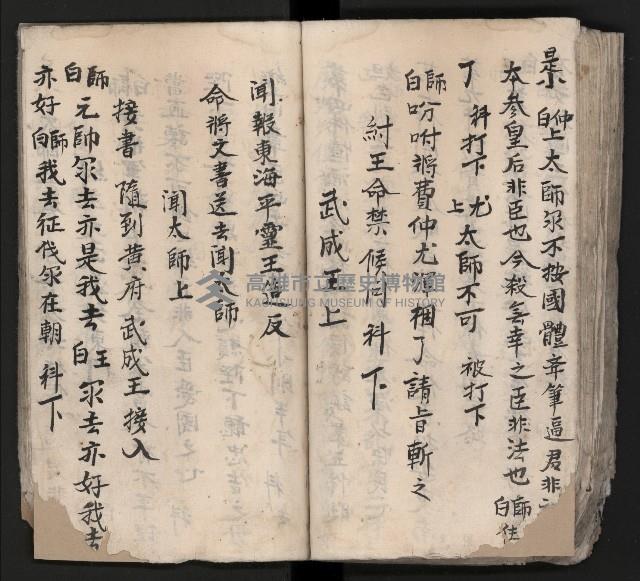 是小 仲白 上太師尔不按國體奔筆逼君非
本參皇后非臣也今殺無幸之臣非法也 師白 住
了 科打下 尤上 太師不可 被打下
師白 吩咐將費仲尤渾捆了請旨斬之
紂王命禁候 科下
武成王上
聞報東海平靈王造反
命將文書送去聞太師
聞太師上
接書 隨到黃府 武成王接入
師白 元帥尔去亦是我去 王白 尔去亦好我去
亦好 師白 我去征伐尔在朝 科下
高雄市立歷史博物館
KAOHSIUNG MUSEUM OF HISTORY